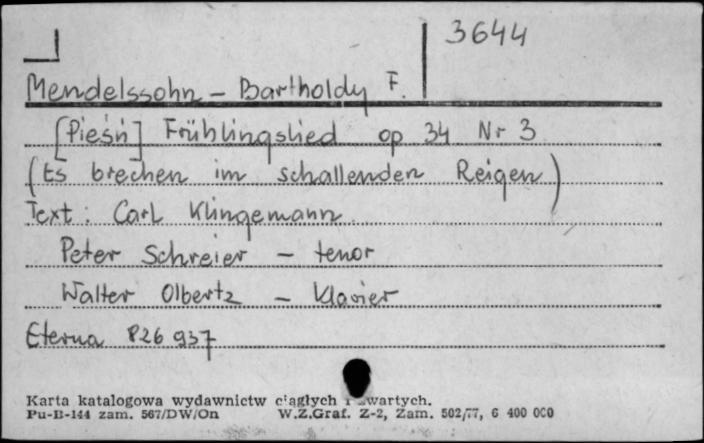 3644
Mendelssohn - Bartholdy F.
[Pieśń] Frühlingslied op 34 Nr 3
(Es brechen im schallenden Reigen)
Text: Carl Klingemann
Peter Schreier - tenor
Walter Olbertz - Klavier
Eterna 826 937
Karta katalogowa wydawnictw ciągłych i zwartych.
Pu-B-144 zam. 567/DW/On W.Z.Graf. Z-2, Zam. 502/77, 6 400 000